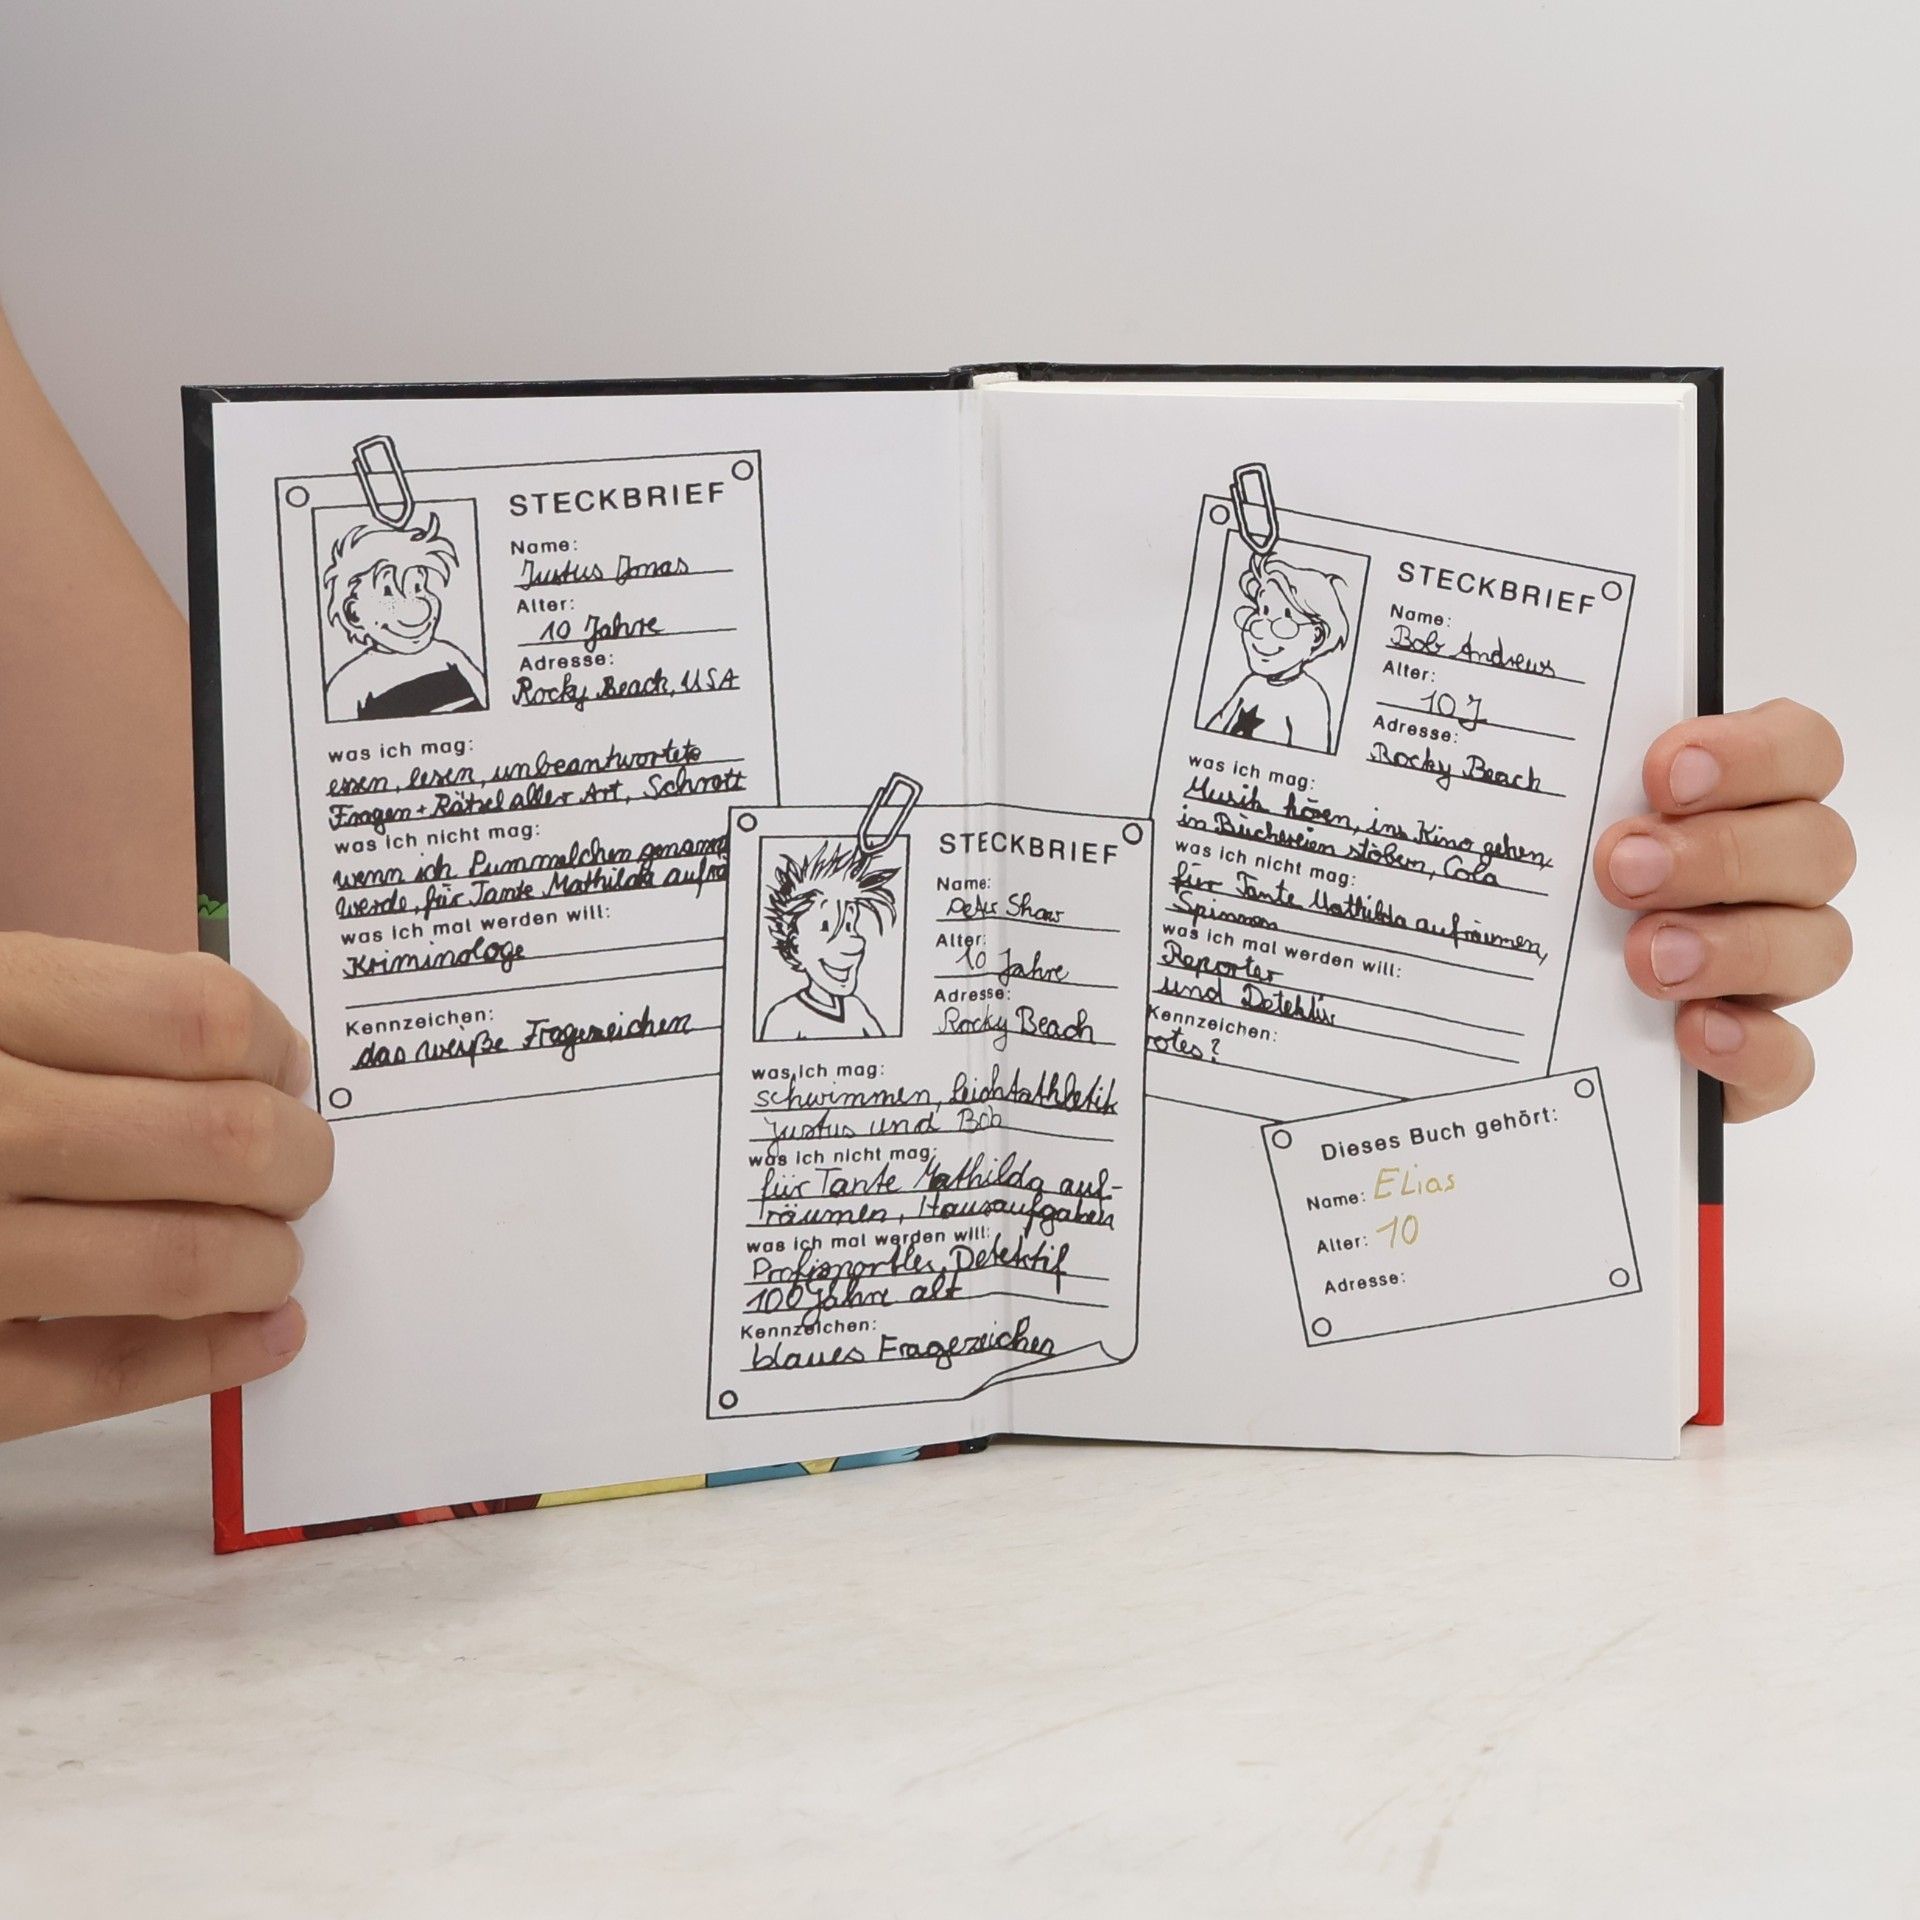 STECKBRIEF
Name:
Justus Jonas
Alter:
10 Jahre
Adresse:
Rocky Beach, USA
was ich mag:
essen, lesen, unbeantwortete
Fragen + Rätsel aller Art, Schrott
was ich nicht mag:
wenn ich Pummelchen genannt
werde, für Tante Mathilda aufrä
was ich mal werden will:
Kriminologe
Kennzeichen:
das weiße Fragezeichen
STECKBRIEF
Name:
Peter Shaw
Alter:
10 Jahre
Adresse:
Rocky Beach
was ich mag:
schwimmen, Leichtathletik
Justus und Bob
was ich nicht mag:
für Tante Mathilda auf-
räumen, Hausaufgaben
was ich mal werden will:
Profisportler, Detektif
100 Jahre alt
Kennzeichen:
blaues Fragezeichen
STECKBRIEF
Name:
Bob Andrews
Alter:
10 J
Adresse:
Rocky Beach
was ich mag:
Musik hören, ins Kino gehen,
in Büchereien stöbern, Cola
was ich nicht mag:
für Tante Mathilda aufräumen,
Spinnen
was ich mal werden will:
Reporter
und Detektiv
Kennzeichen:
rotes?
Dieses Buch gehört:
Name: ELias
Alter: 10
Adresse: